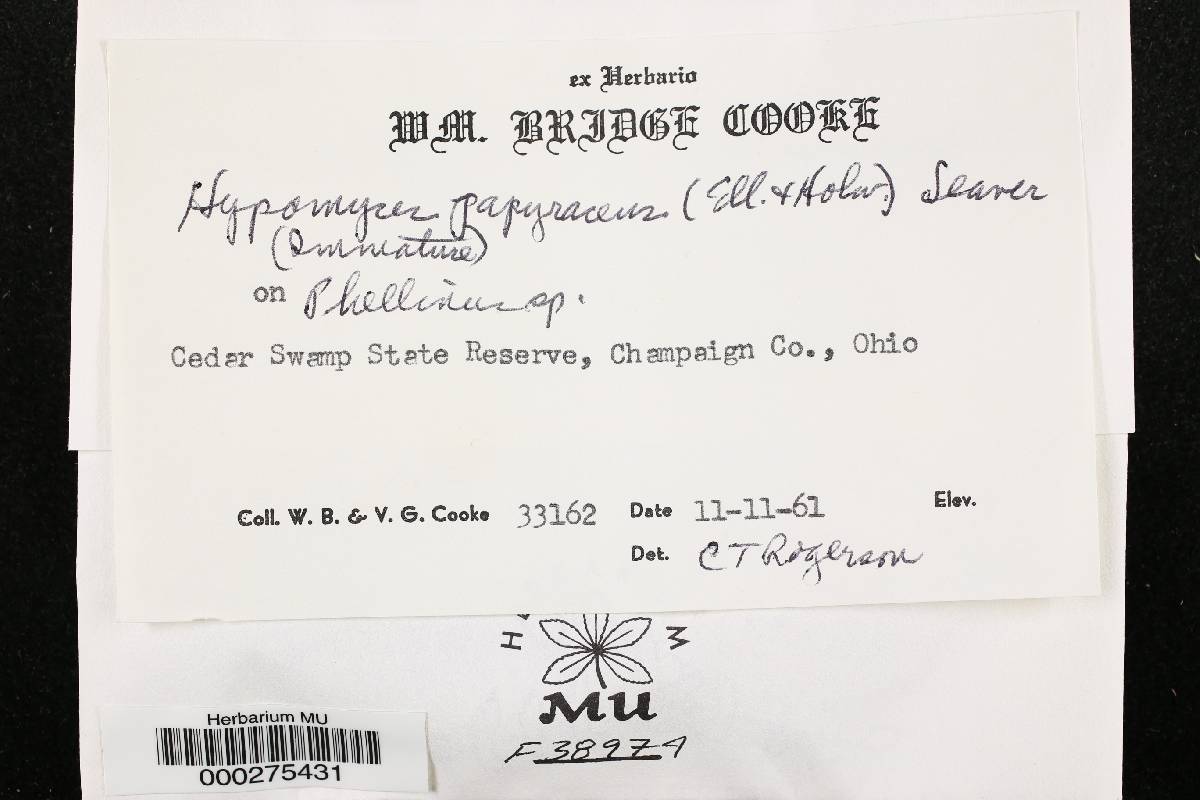 ex Herbario
WM. BRIDGE COOKE
Hypomyces papyraceus (Ell. & Holw.) Seaver
(Immature)
on Phellinus sp.
Cedar Swamp State Reserve, Champaign Co., Ohio
Coll. W. B. & V. G. Cooke 33162 Date 11-11-61 Elev.
Det. C T Rogerson
MU
F 38974
Herbarium MU
000275431